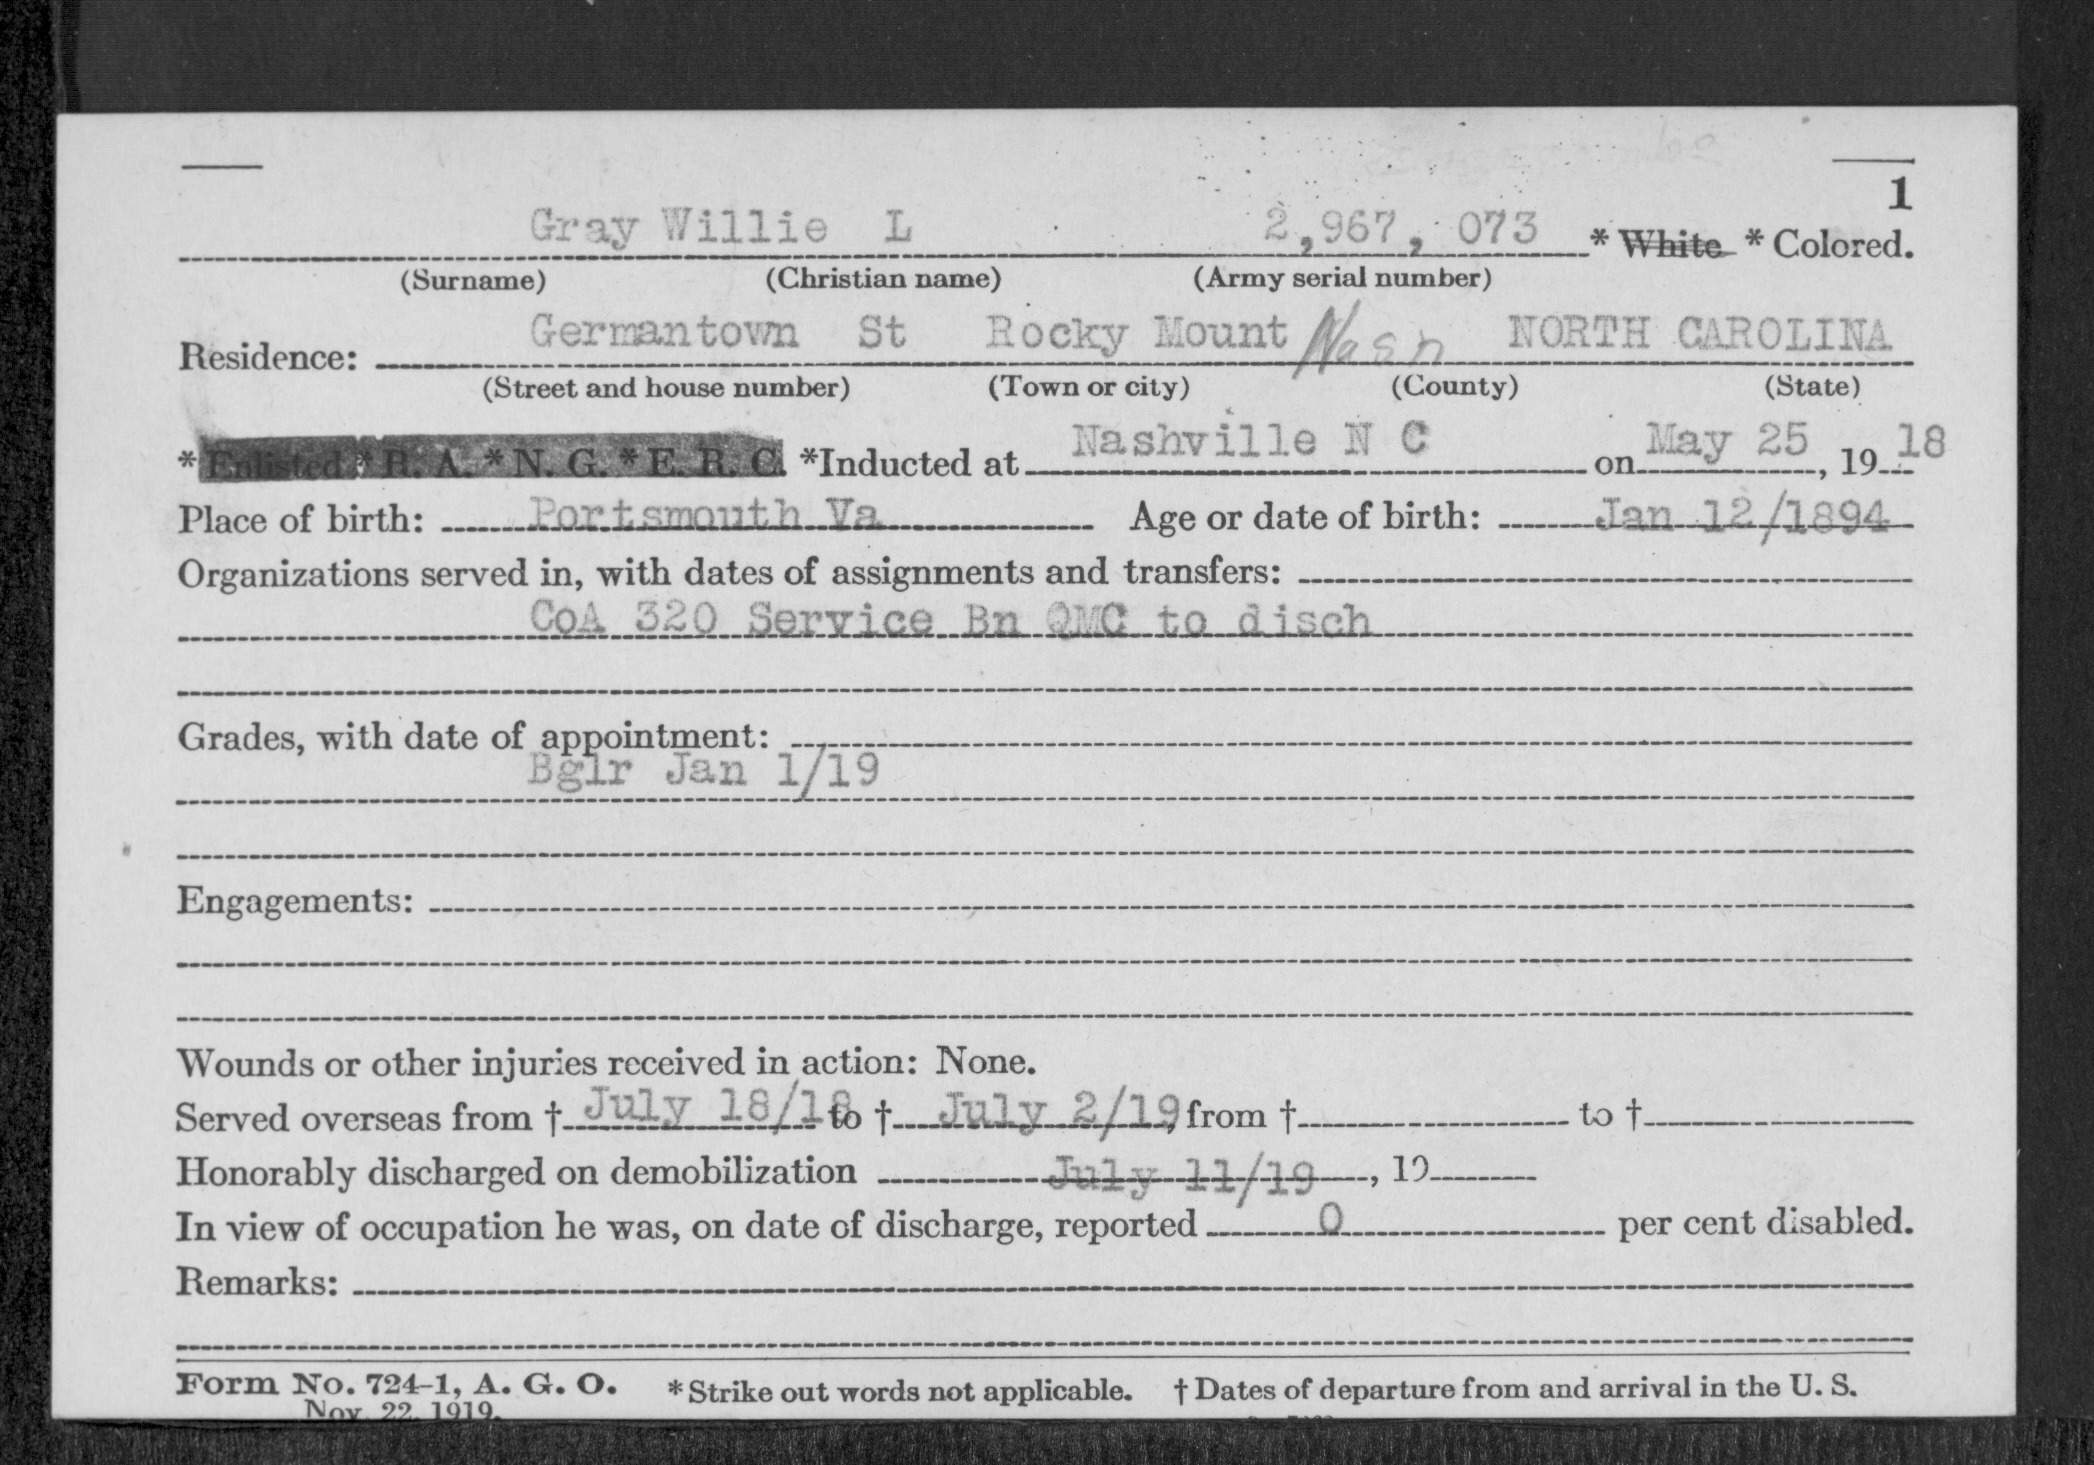 1
Gray Willie L 2,967,073 * White * Colored.
(Surname) (Christian name) (Army serial number)
Residence: Germantown St Rocky Mount Nash NORTH CAROLINA
(Street and house number) (Town or city) (County) (State)
* Enlisted * R. A. * N. G. * E. R. C. *Inducted at Nashville N C on May 25, 1918
Place of birth: Portsmouth Va Age or date of birth: Jan 12/1894
Organizations served in, with dates of assignments and transfers:
CoA 320 Service Bn QMC to disch
Grades, with date of appointment:
Bglr Jan 1/19
Engagements:
Wounds or other injuries received in action: None.
Served overseas from † July 18/18 to † July 2/19, from † to †
Honorably discharged on demobilization July 11/19, 19
In view of occupation he was, on date of discharge, reported 0 per cent disabled.
Remarks:
Form No. 724-1, A. G. O. * Strike out words not applicable. † Dates of departure from and arrival in the U. S.
Nov. 22, 1919.